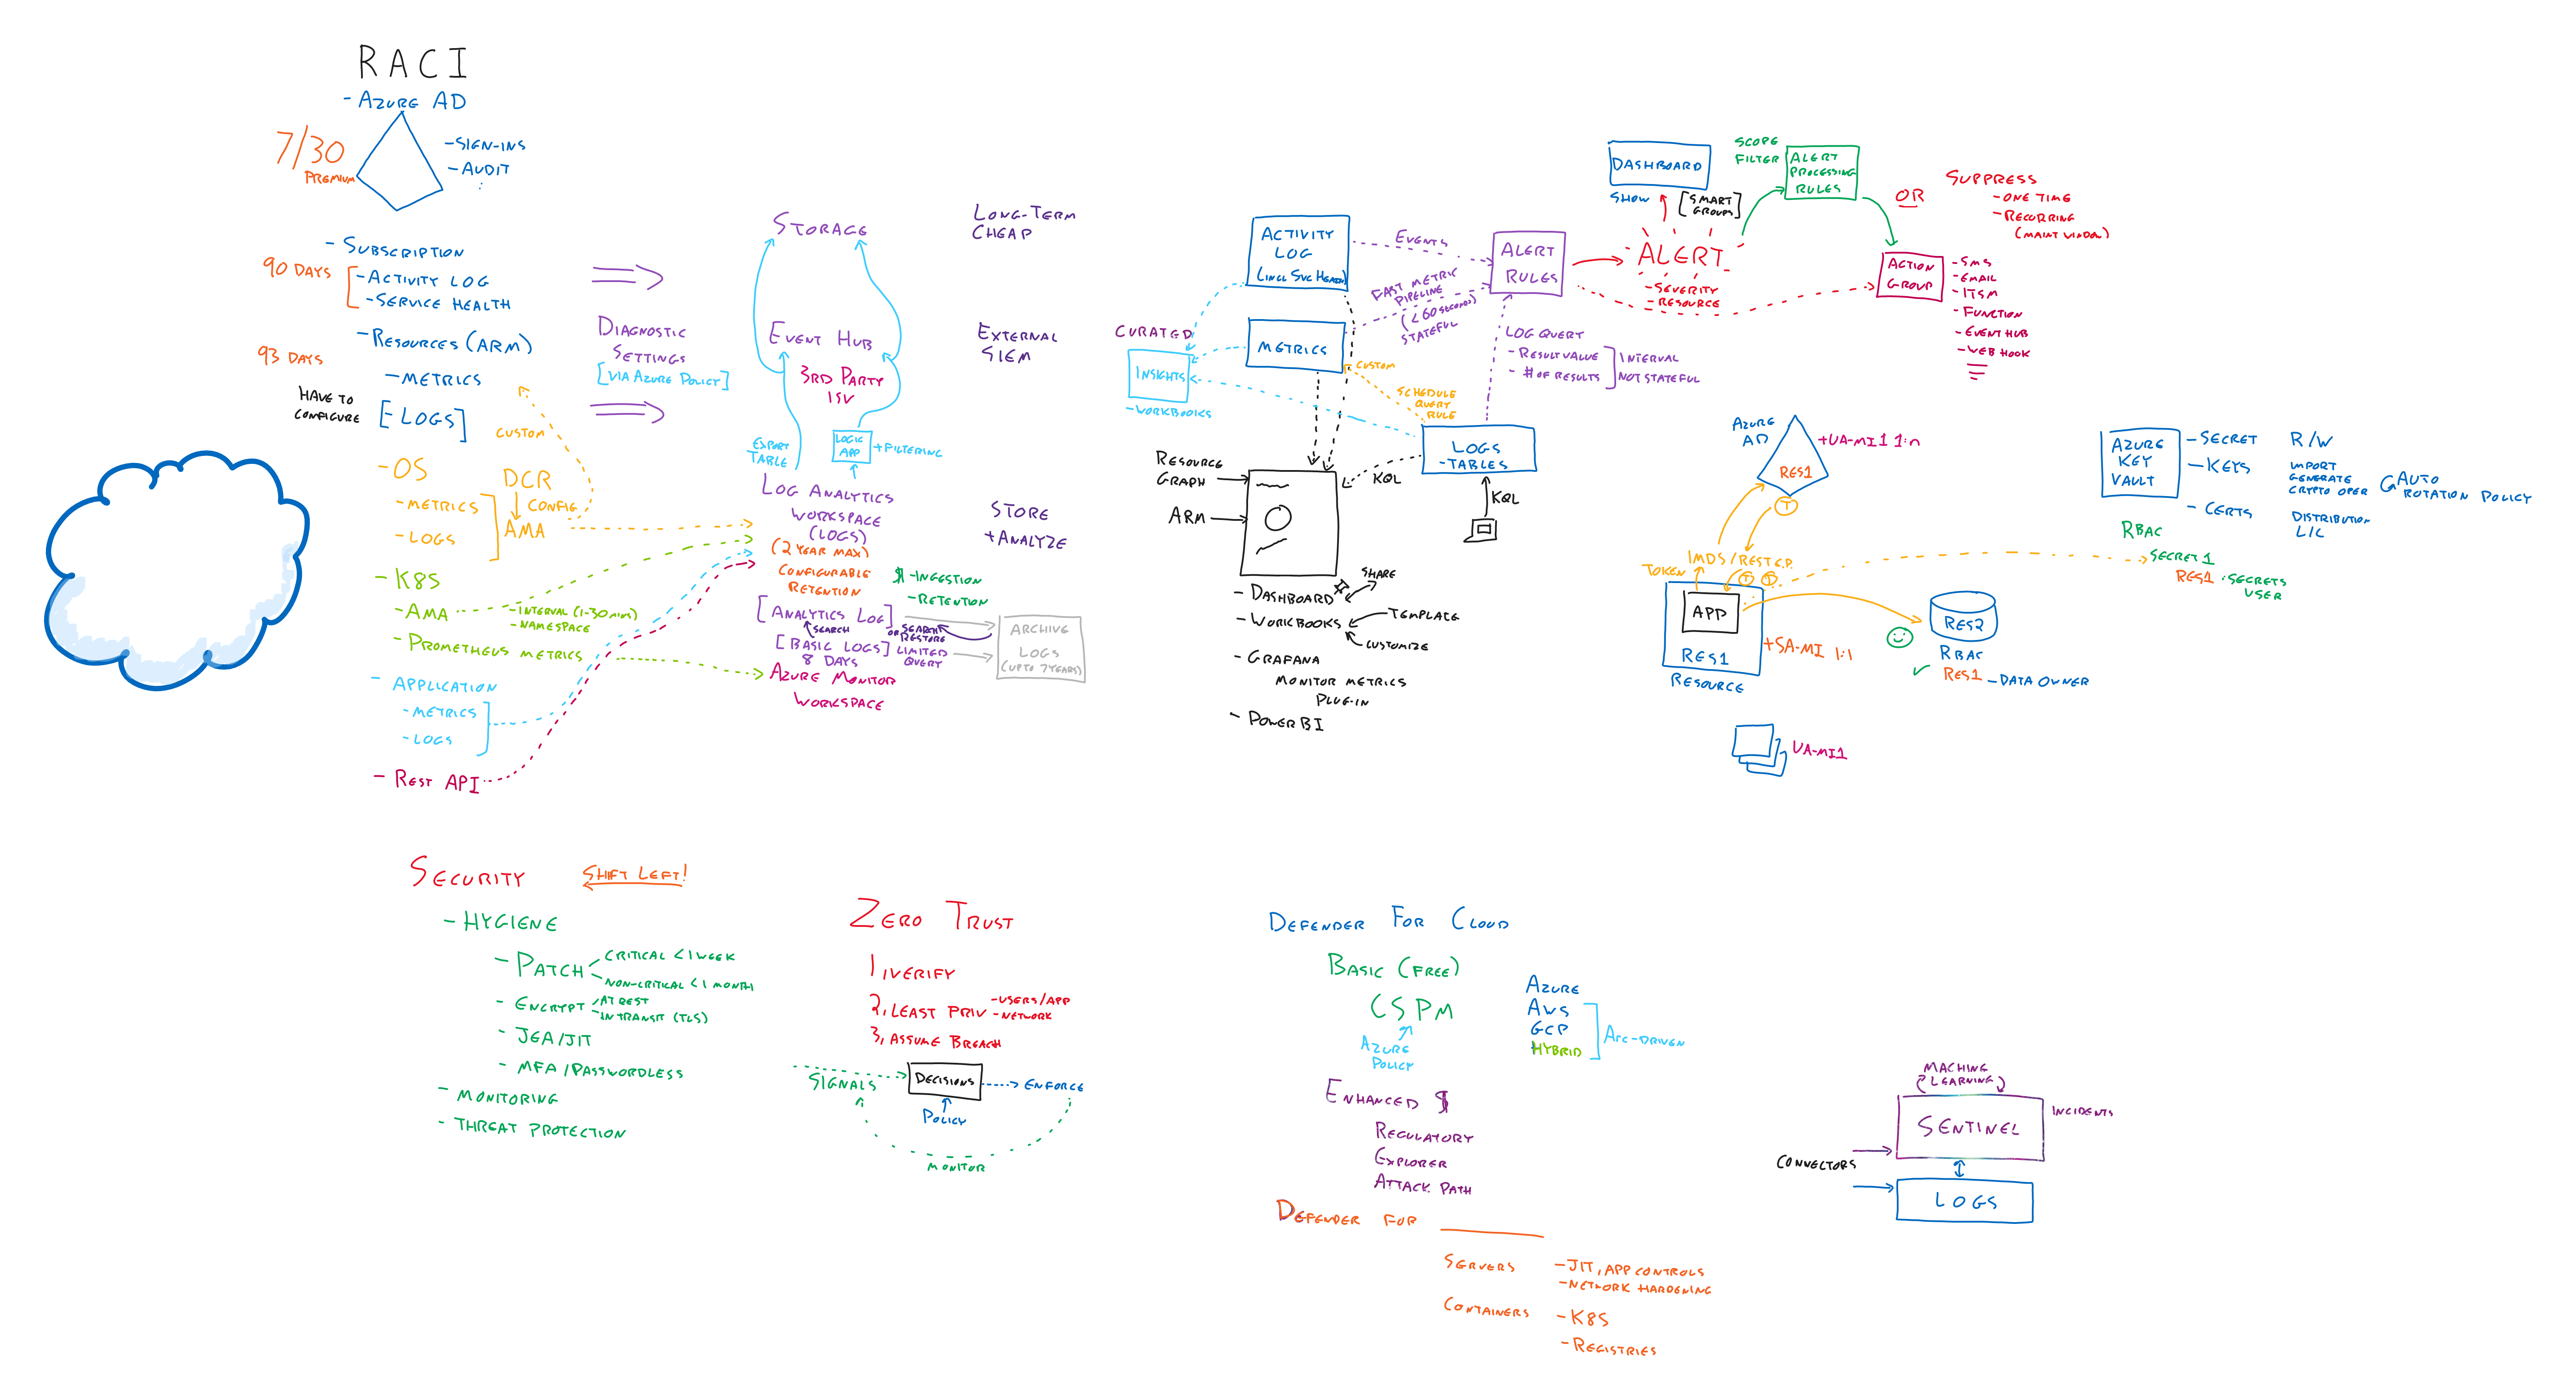 RACI
- AZURE AD
7/30
PREMIUM
- SIGN-INS
- AUDIT
- SUBSCRIPTION
90 DAYS
- ACTIVITY LOG
- SERVICE HEALTH
- RESOURCES (ARM)
93 DAYS
- METRICS
HAVE TO
CONFIGURE
[- LOGS]
CUSTOM
- OS
- METRICS
- LOGS
DCR
CONFIG
AMA
- K8S
- AMA
- INTERVAL (1-30MINS)
- NAMESPACE
- PROMETHEUS METRICS
- APPLICATION
- METRICS
- LOGS
- REST API
DIAGNOSTIC
SETTINGS
[VIA AZURE POLICY]
STORAGE
EVENT HUB
3RD PARTY
ISV
EXPORT
TABLE
LOGIC
APP
+ FILTERING
LOG ANALYTICS
WORKSPACE
(LOGS)
(2 YEAR MAX)
CONFIGURABLE
RETENTION
$ - INGESTION
- RETENTION
[ANALYTICS LOG]
SEARCH
SEARCH
OR RESTORE
[BASIC LOGS]
8 DAYS
LIMITED
QUERY
ARCHIVE
LOGS
(UPTO 7YEARS)
AZURE MONITOR
WORKSPACE
LONG-TERM
CHEAP
EXTERNAL
SIEM
STORE
+ ANALYZE
ACTIVITY
LOG
(INCL SVC HEALTH)
METRICS
CURATED
INSIGHTS
- WORKBOOKS
EVENTS
FAST METRIC
PIPELINE
(<60 SECONDS)
STATEFUL
ALERT
RULES
LOG QUERY
- RESULT VALUE
- # OF RESULTS
INTERVAL
NOT STATEFUL
CUSTOM
SCHEDULE
QUERY
RULE
LOGS
- TABLES
KQL
KQL
RESOURCE
GRAPH
ARM
- DASHBOARD
SHARE
- WORKBOOKS
TEMPLATE
CUSTOMIZE
- GRAFANA
MONITOR METRICS
PLUG-IN
- POWER BI
DASHBOARD
SHOW
[SMART
GROUPS]
ALERT
- SEVERITY
- RESOURCE
SCOPE
FILTER
ALERT
PROCESSING
RULES
OR
SUPPRESS
- ONE TIME
- RECURRING
(MAINT WINDOW)
ACTION
GROUP
- SMS
- EMAIL
- ITSM
- FUNCTION
- EVENT HUB
- WEB HOOK
AZURE
AD
RES1
+UA-MI1 1:n
T
IMDS/REST E.P.
TOKEN
T T
APP
RES1
RESOURCE
+SA-MI 1:1
RES2
RBAC
RES1 - DATA OWNER
UA-MI1
AZURE
KEY
VAULT
- SECRET
R/W
- KEYS
IMPORT
GENERATE
CRYPTO OPER
AUTO
ROTATION POLICY
- CERTS
DISTRIBUTION
L/C
RBAC
SECRET 1
RES1 : SECRETS
USER
SECURITY
SHIFT LEFT!
- HYGIENE
- PATCH
CRITICAL <1 WEEK
NON-CRITICAL <1 MONTH
- ENCRYPT
AT REST
IN TRANSIT (TLS)
- JEA/JIT
- MFA/PASSWORDLESS
- MONITORING
- THREAT PROTECTION
ZERO TRUST
1, VERIFY
2, LEAST PRIV
- USERS/APP
- NETWORK
3, ASSUME BREACH
SIGNALS
DECISIONS
ENFORCE
POLICY
MONITOR
DEFENDER FOR CLOUD
BASIC (FREE)
CSPM
AZURE
POLICY
AZURE
AWS
GCP
HYBRID
ARC-DRIVEN
ENHANCED $
REGULATORY
EXPLORER
ATTACK PATH
DEFENDER FOR
SERVERS
- JIT, APP CONTROLS
- NETWORK HARDENING
CONTAINERS
- K8S
- REGISTRIES
MACHING
LEARNING
SENTINEL
INCIDENTS
CONNECTORS
LOGS